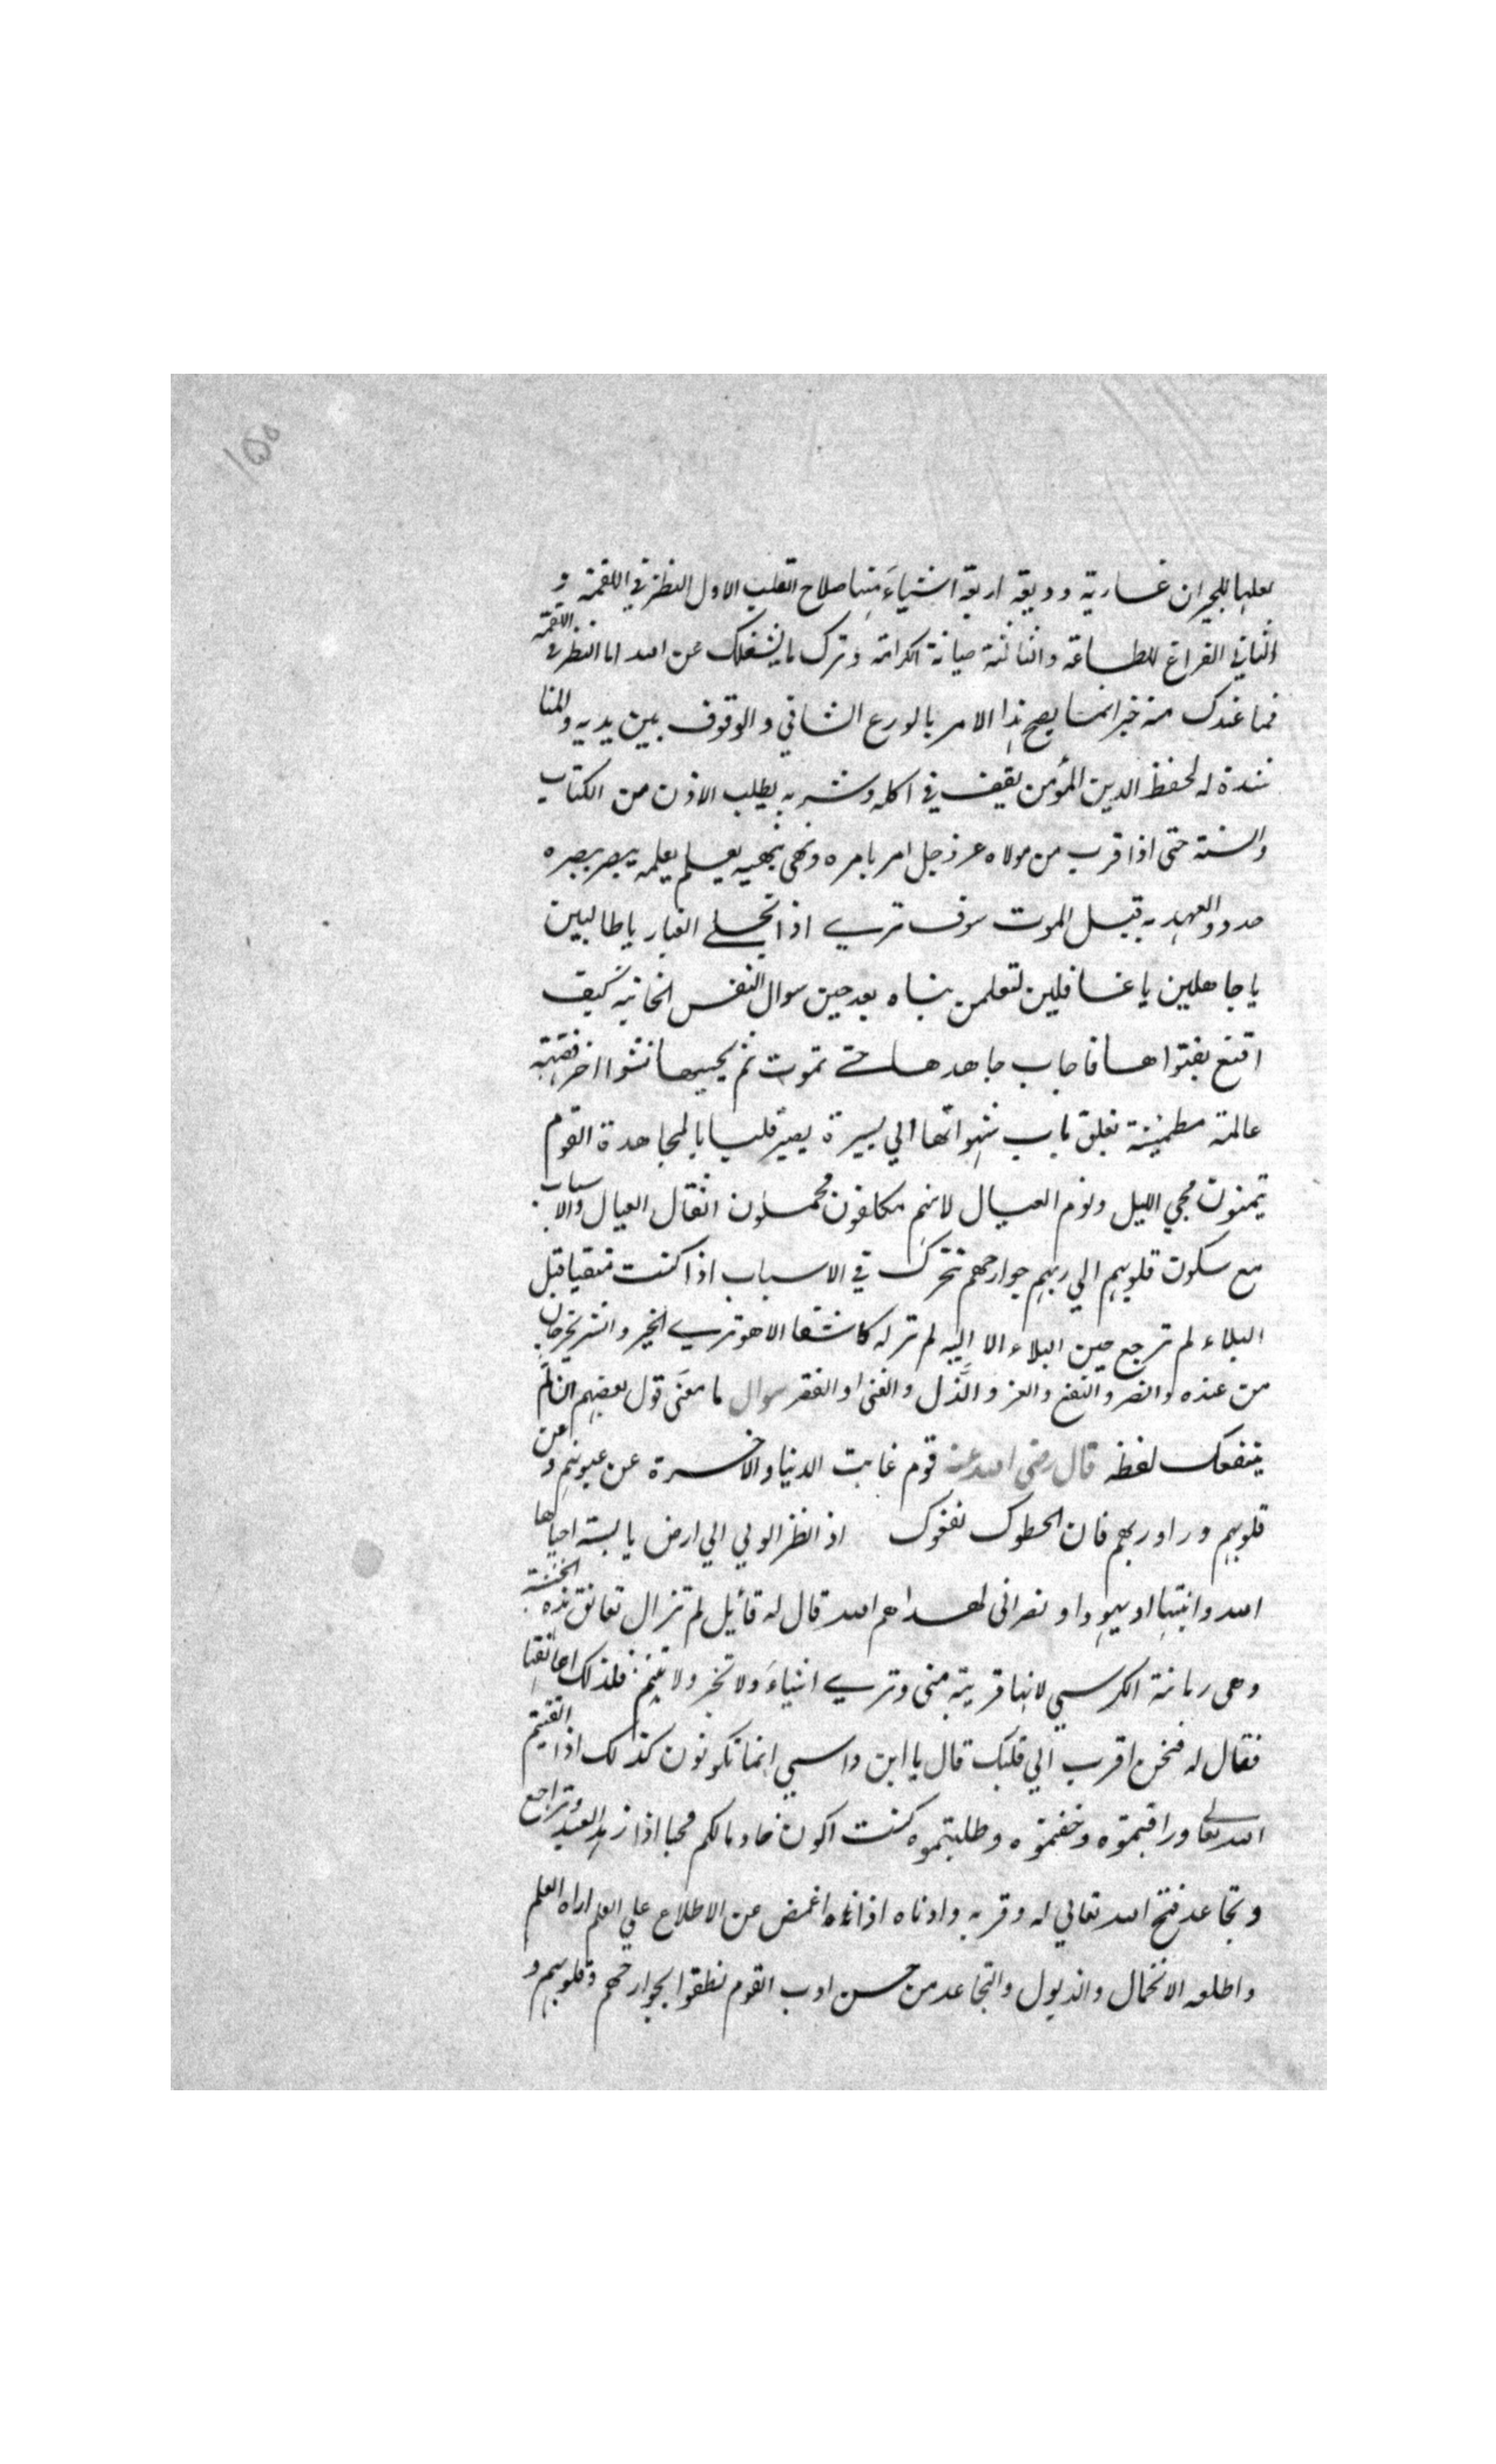 ١٥٥
بعلها للجيران عارية ووديعة اربعة اشياء منها صلاح القلب الاول النظر في اللقمة و
الثاني الفراغ للطاعة والثالثة صيانة الكرامة وترك ما يشغلك عن الله اما النظر في اللقمة
فما عندك منه خبر انما يصح هذا الامر بالورع الشافي والوقوف بين يديه والمنا
شدة له لحفظ الدين المؤمن يقف في اكله وشربه يطلب الاذن من الكتاب
والسنة حتى اذا قرب من مولاه عز وجل امر بامره ونهى بنهيه يعلم بعلمه يبصر ببصره
جددوا العهد به قبل الموت سوف تري اذا انجلي الغبار يا طالبين
يا جاهلين يا غافلين لتعلمن نباه بعد حين سوال النفس الخائنة كيف
اقنع بفتواها فاجاب جاهدها حتي تموت ثم يحييها نشوا اخر فقيهة
عالمة مطمئنة تغلق باب شهواتها الي يسيرة يصير قلبا بالمجاهدة القوم
يتمنون مجي الليل ونوم العيال لانهم مكلفون محملون اثقال العيال والاسباب
مع سكون قلوبهم الي ربهم جوارحهم تتحرك في الاسباب اذا كنت متقيا قبل
البلاء لم ترجع حين البلاء الا اليه لم تر له كاشفا الا هو تري الخير والشر يخرجان
من عنده والضر والنفع والعز والذل والغنى او الفقر سوال ما معنى قول بعضهم ان لم
ينفعك لفظه قال رضى الله عنه قوم غابت الدنيا والاخرة عن عيونهم وعن
قلوبهم وراوا ربهم فان لحظوك نفعوك اذا نظر الولي الي ارض يابسة احياها
الله وانبتها او يهودا او نصرانى لهداهم الله قال له قائل لم تزال تعانق هذه الخشبة
وهى رمانة الكرسي لانها قريبة منى وتري اشياء ولا تخبر ولا تنم فلذلك اعانقها
فقال له فنحن اقرب الي قلبك قال يا ابن واسي انما تكونون كذلك اذا اتقيتم
الله تعالي وراقبتموه وخفتموه وطلبتموه كنت اكون خادما لكم محبا اذا زهد العبد وتراجع
وتجاعد فتح الله تعالي له وقربه وادناه اذا اغمض عن الاطلاع علي العلم اراه العلم
واطلعه الانخمال والذبول والتجاعد من حسن ادب القوم نطقوا بجوارحهم وقلوبهم و